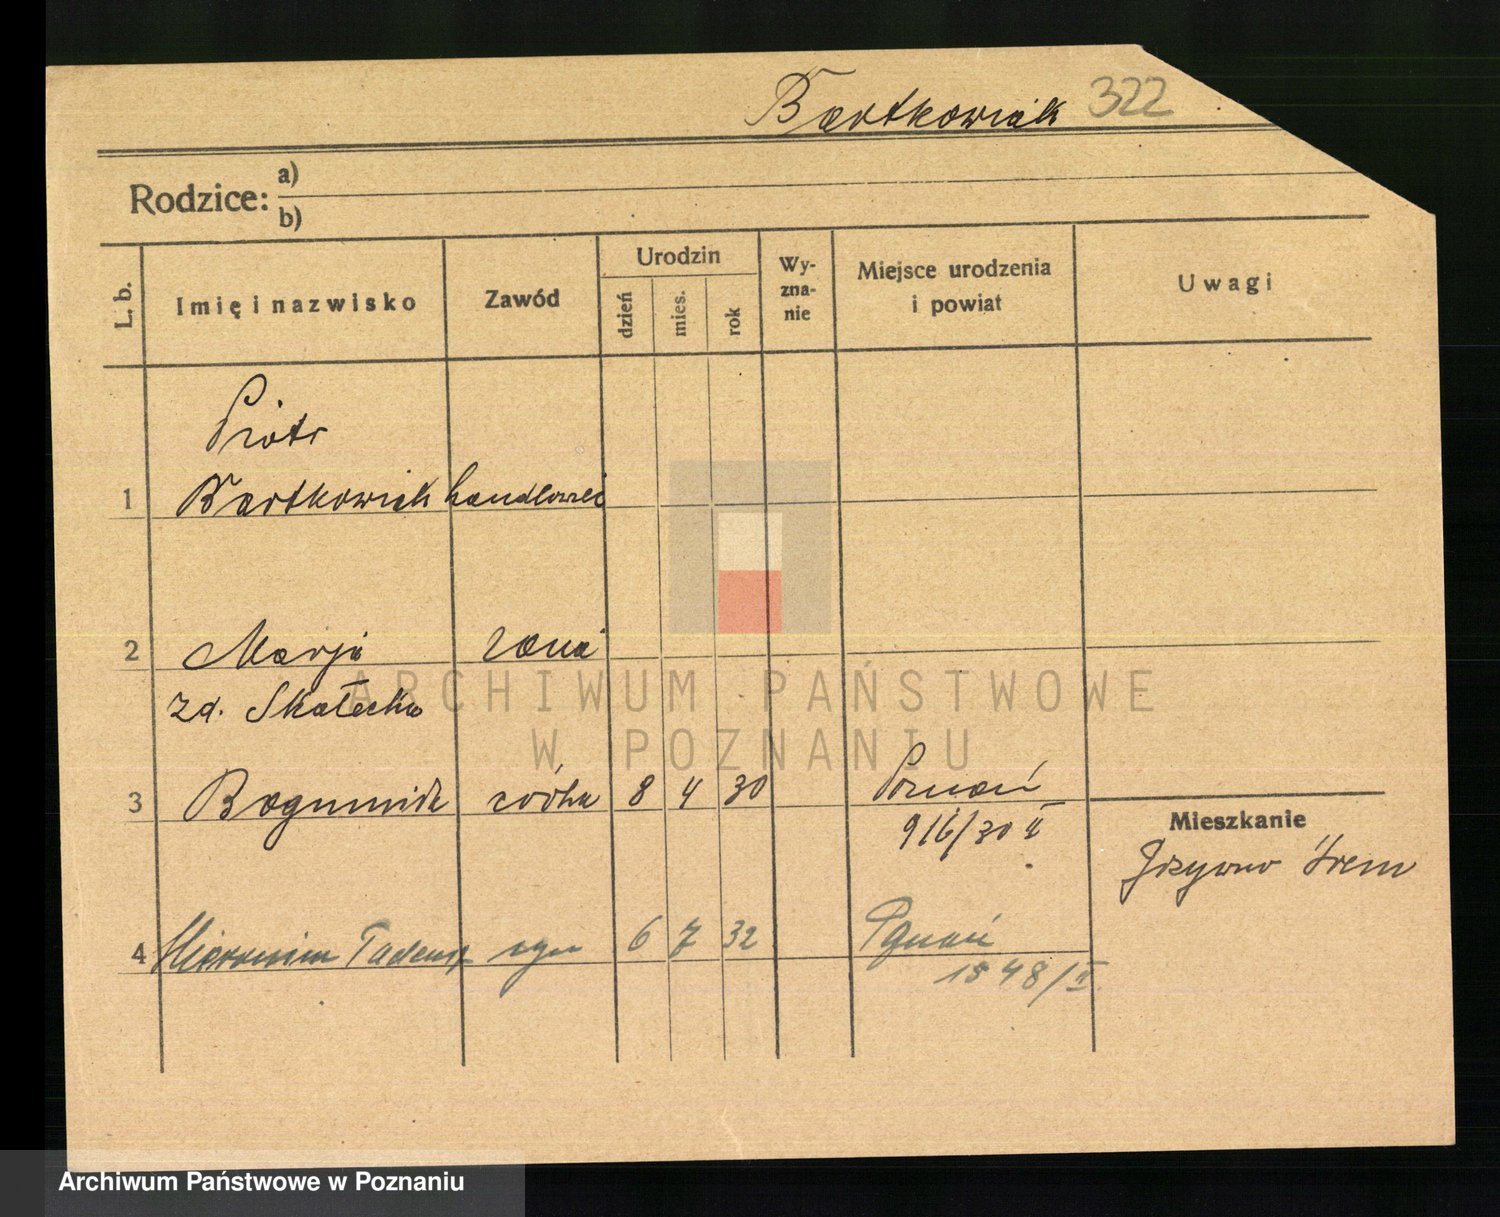 Bartkowiak 322
Rodzice: a)
b)
L. b.
Imię i nazwisko
Zawód
Urodzin
dzień
mies.
rok
Wy-
zna-
nie
Miejsce urodzenia
i powiat
Uwagi
Piotr
1 Bartkowiak handlowiec
2 Marja żona
zd. Skałecka
3 Bogumiła córka 8 4 30 Poznań
916/30 II
Mieszkanie
Śrem
4 Hieronim Tadeusz syn 6 7 32 Poznań
1548/II
ARCHIWUM PAŃSTWOWE
W POZNANIU
Archiwum Państwowe w Poznaniu